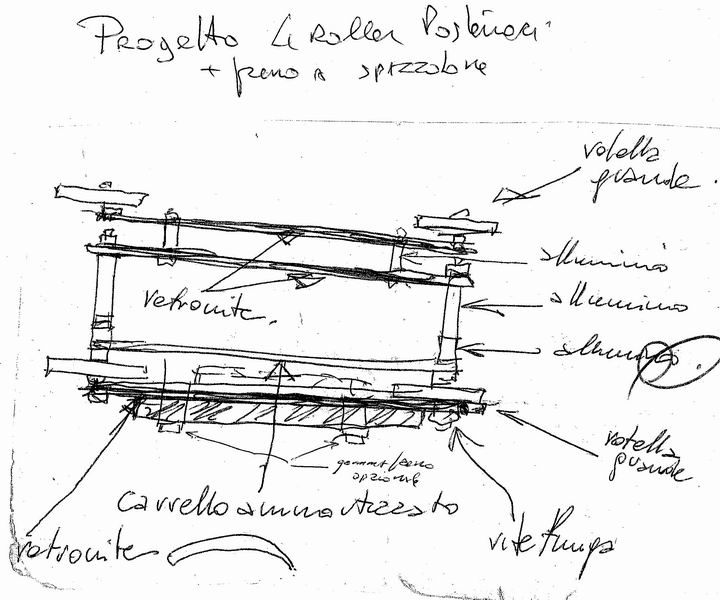 Progetto 4 Roller Posteriori
+ freno a spazzolone
rotella
grande.
alluminio
alluminio
vetronite.
alluminio.
rotella
grande
gomma/freno
opzionale
Carrello ammortizzato
vetronite
vite lunga